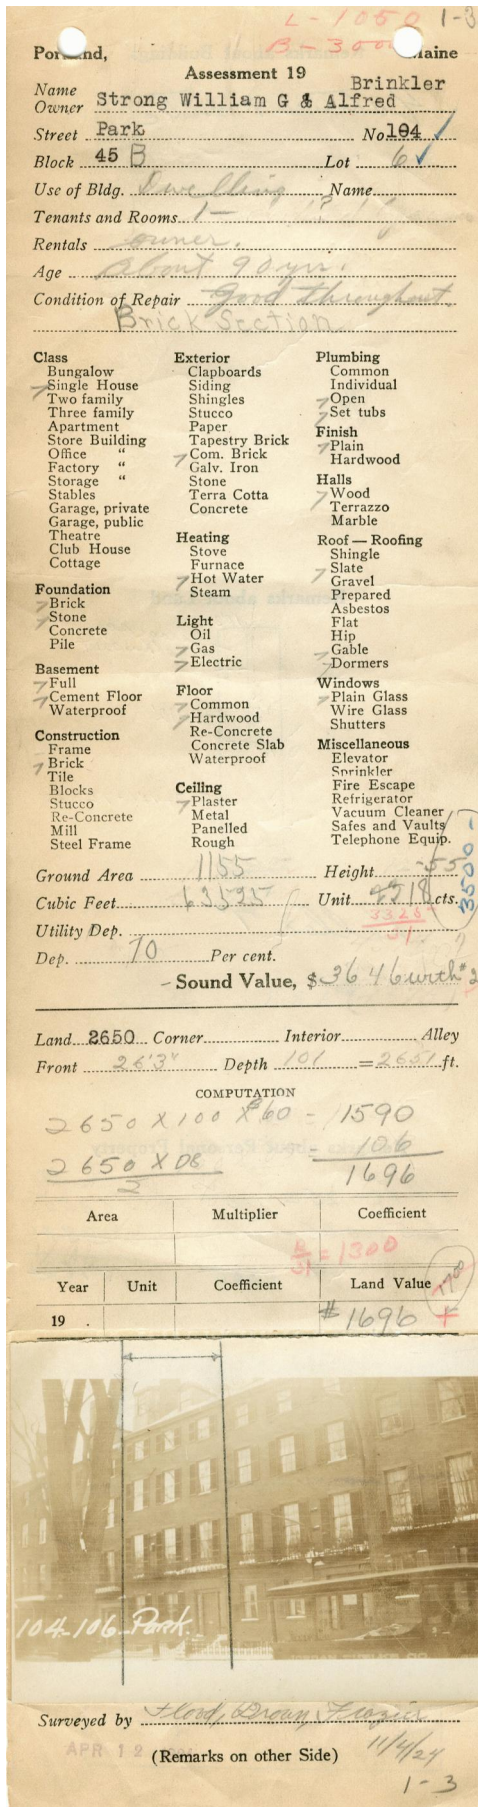 L - 1050 1-3
B - 3000
Portland, Maine
Assessment 19
Name
Owner Strong William G & Alfred Brinkler
Street Park No. 104
Block 45 B Lot 6
Use of Bldg. Dwelling ? Name
Tenants and Rooms 1 -
Rentals owner.
Age About 90 yr.
Condition of Repair Good throughout.
Brick Section
Class
Bungalow
Single House
Two family
Three family
Apartment
Store Building
Office "
Factory "
Storage "
Stables
Garage, private
Garage, public
Theatre
Club House
Cottage
Foundation
Brick
Stone
Concrete
Pile
Basement
Full
Cement Floor
Waterproof
Construction
Frame
Brick
Tile
Blocks
Stucco
Re-Concrete
Mill
Steel Frame
Exterior
Clapboards
Siding
Shingles
Stucco
Paper
Tapestry Brick
Com. Brick
Galv. Iron
Stone
Terra Cotta
Concrete
Heating
Stove
Furnace
Hot Water
Steam
Light
Oil
Gas
Electric
Floor
Common
Hardwood
Re-Concrete
Concrete Slab
Waterproof
Ceiling
Plaster
Metal
Panelled
Rough
Plumbing
Common
Individual
Open
Set tubs
Finish
Plain
Hardwood
Halls
Wood
Terrazzo
Marble
Roof — Roofing
Shingle
Slate
Gravel
Prepared
Asbestos
Flat
Hip
Gable
Dormers
Windows
Plain Glass
Wire Glass
Shutters
Miscellaneous
Elevator
Sprinkler
Fire Escape
Refrigerator
Vacuum Cleaner
Safes and Vaults
Telephone Equip.
3500-
Ground Area 1155 Height 55
Cubic Feet 63525 Unit 18 cts.
3325
31
Utility Dep.
Dep. 70 Per cent.
Sound Value, $ 3646 with #2
Land 2650 Corner Interior Alley
Front 26'3" Depth 101 = 2651 ft.
COMPUTATION
2650 X 100 X 60 = 1590
2650 X 08 - 106
2 1696
Area Multiplier Coefficient
= 1300
31
Year Unit Coefficient Land Value
19 . $1696 +
104-106-Park.
Surveyed by Flood, Brown, Frazier
APR 12
(Remarks on other Side) 11/4/24
1-3